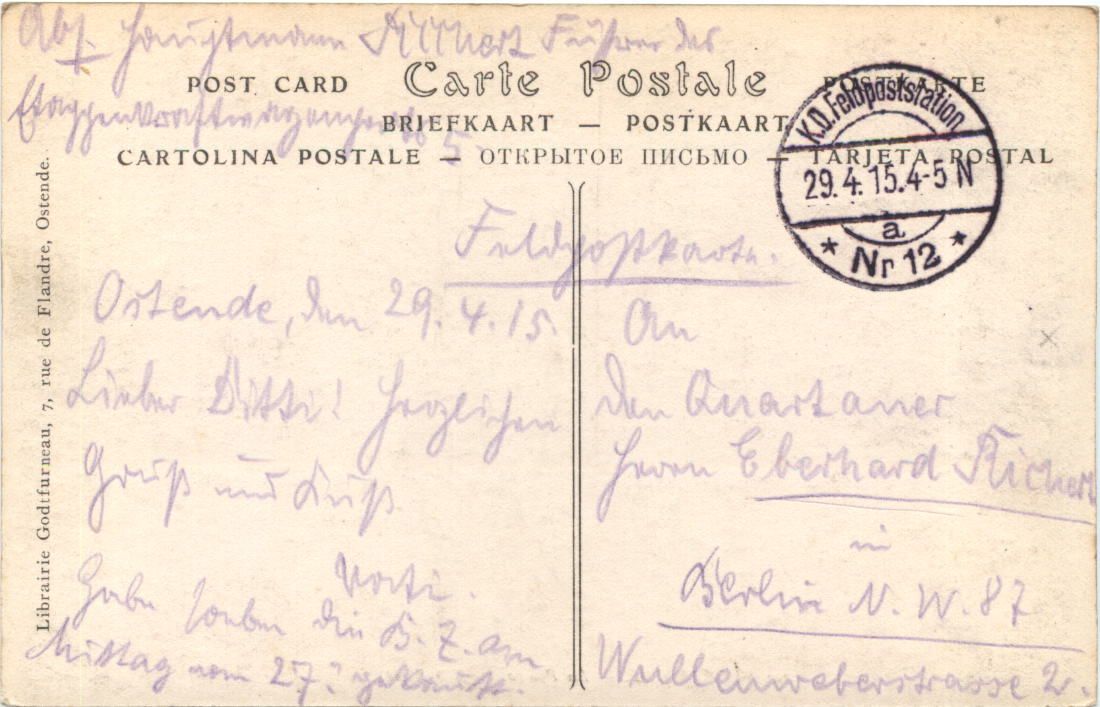 Abs. Hauptmann Führer des
POST CARD Carte Postale POSTKARTE
Etappenkraftwagenparks 5.
BRIEFKAART — POSTKAART
CARTOLINA POSTALE — ОТКРЫТОЕ ПИСЬМО — TARJETA POSTAL
K.D. Feldpoststation
29.4.15.4-5 N
a
* Nr 12 *
Librairie Godtfurneau, 7, rue de Flandre, Ostende.
Feldpostkarte.
Ostende, den 29.4.15.
Lieber Ditti! Herzlichen
Gruß und Kuß
Vati.
Habe soeben die B.Z. am
Mittag vom 27. gekauft.
An
den Quartaner
Herrn Eberhard Richert
in
Berlin N.W. 87
Wullenweberstrasse 2.